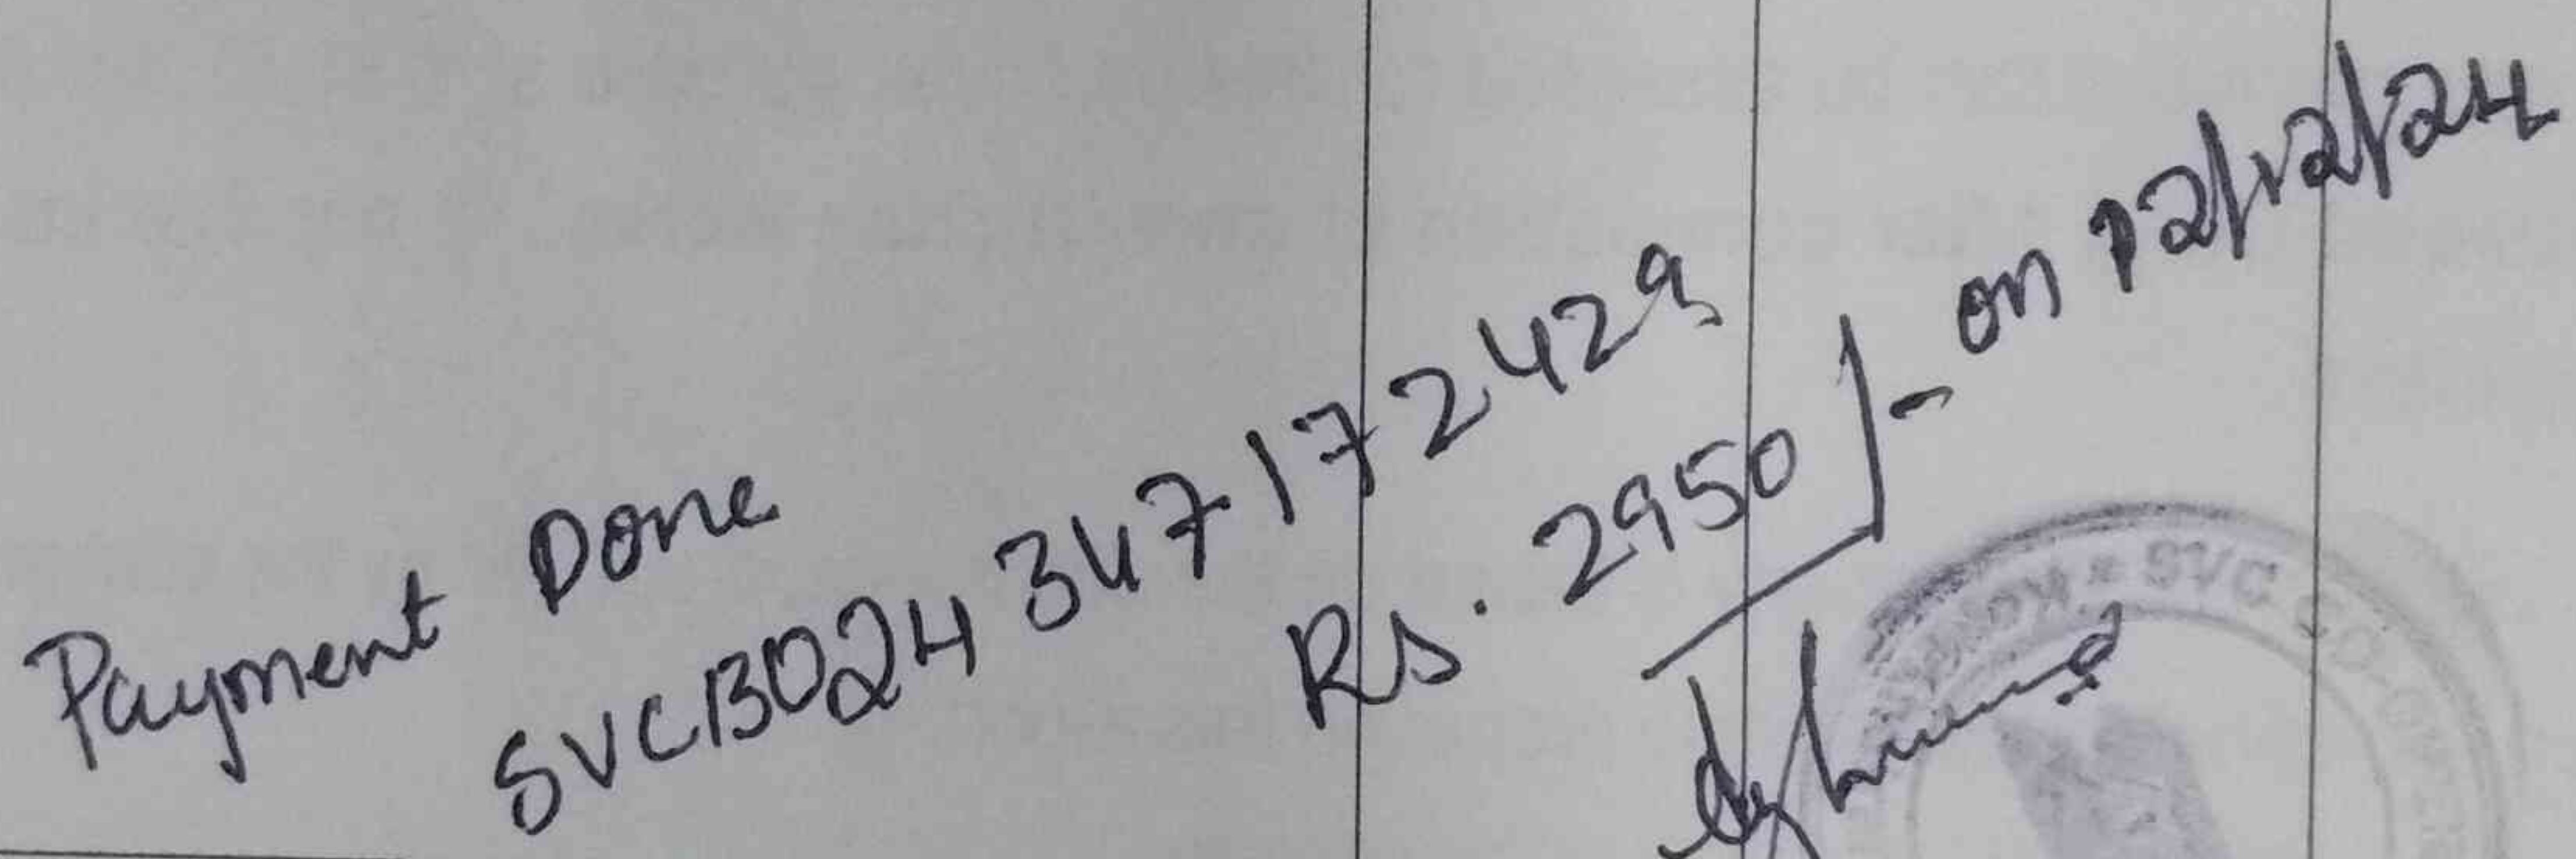 Payment Done
SVCB024347172429
Rs. 2950/- on 12/12/24
SVC CO-OPER